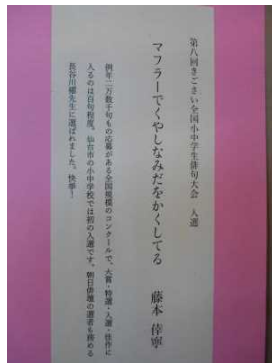 第八回きごさい全国小中学生俳句大会　入選
マフラーでくやしなみだをかくしてる　藤本 倖寧
例年二万数千句もの応募がある全国規模のコンクールで、大賞・特選・入選・佳作に
入るのは百句程度。仙台市の小中学校では初の入選です。朝日俳壇の選者も務める
長谷川櫂先生に選ばれました。快挙！